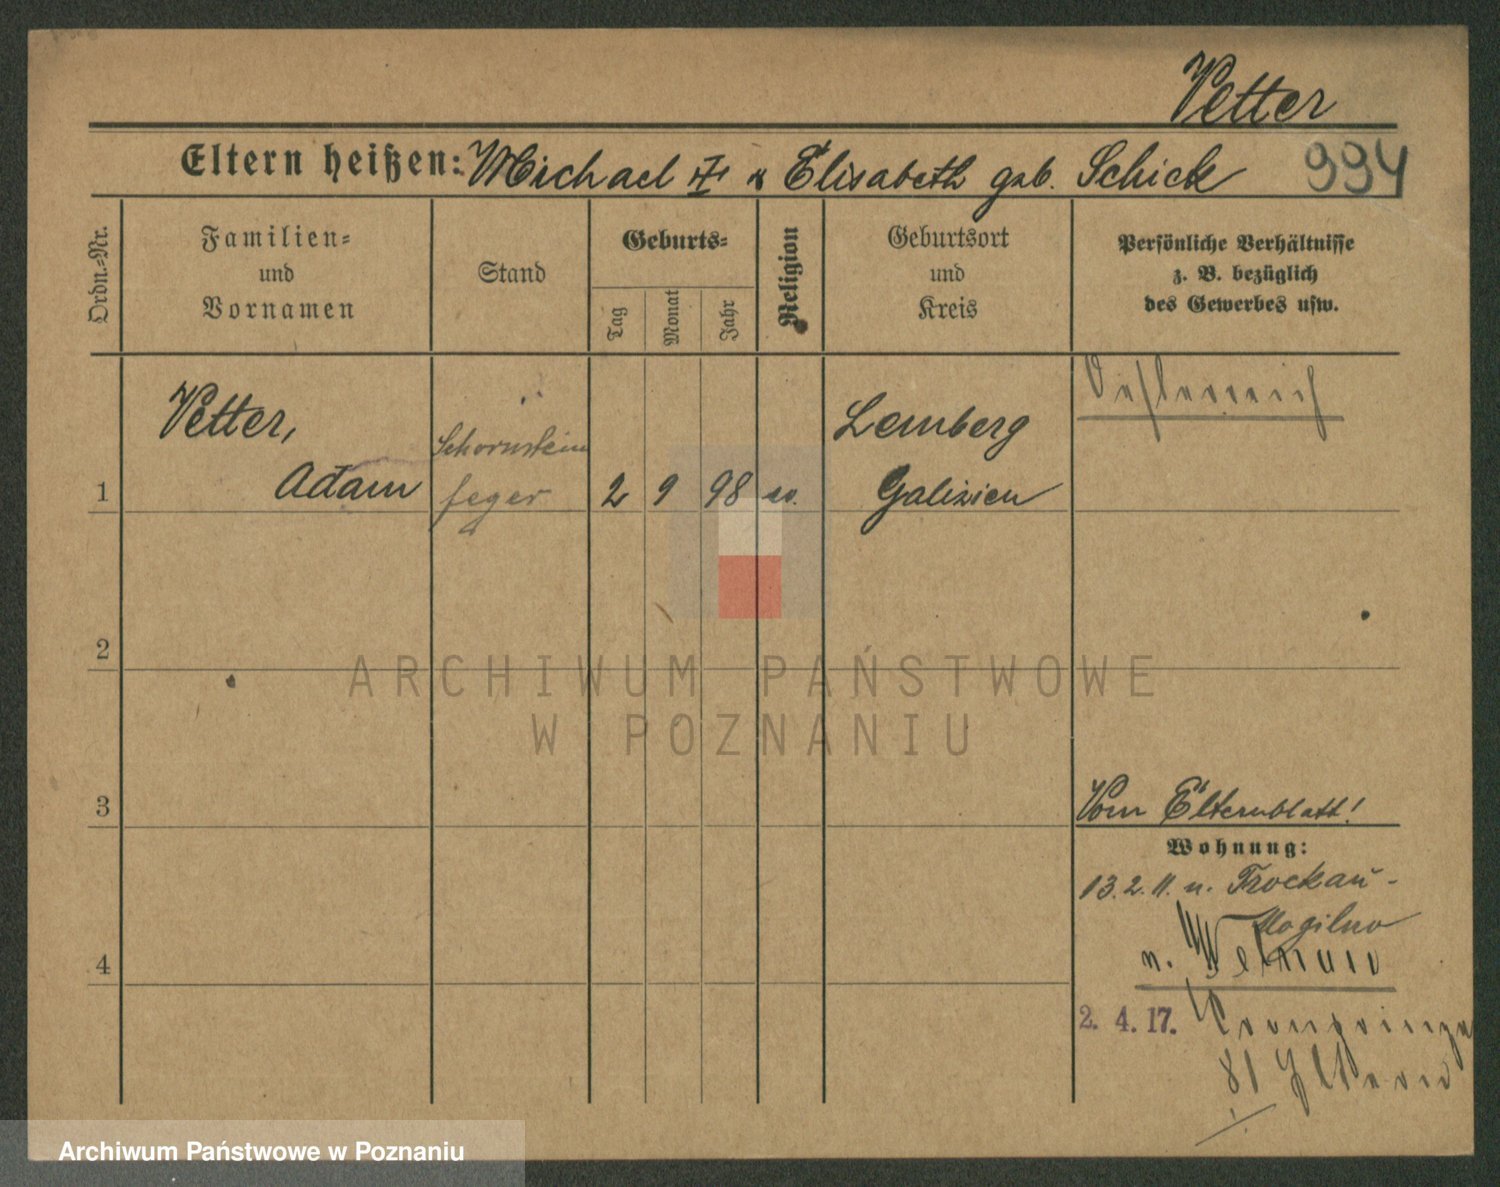 Vetter
Eltern heißen: Michael & Elisabeth geb. Schick 994
Ordn.=Nr.
Familien=
und
Vornamen
Stand
Geburts=
Tag
Monat
Jahr
Religion
Geburtsort
und
Kreis
Persönliche Verhältnisse
z. B. bezüglich
des Gewerbes usw.
Oesterreich
Vetter,
Adam
Schornstein
feger
1
2 9 98
Lemberg
Galizien
2
3
4
Vom Elternblatt!
Wohnung:
13.2.11. n. Trockau-
Mogilno
n. Welnau
2. 4. 17. Kronprinz
81
ARCHIWUM PAŃSTWOWE
W POZNANIU
Archiwum Państwowe w Poznaniu